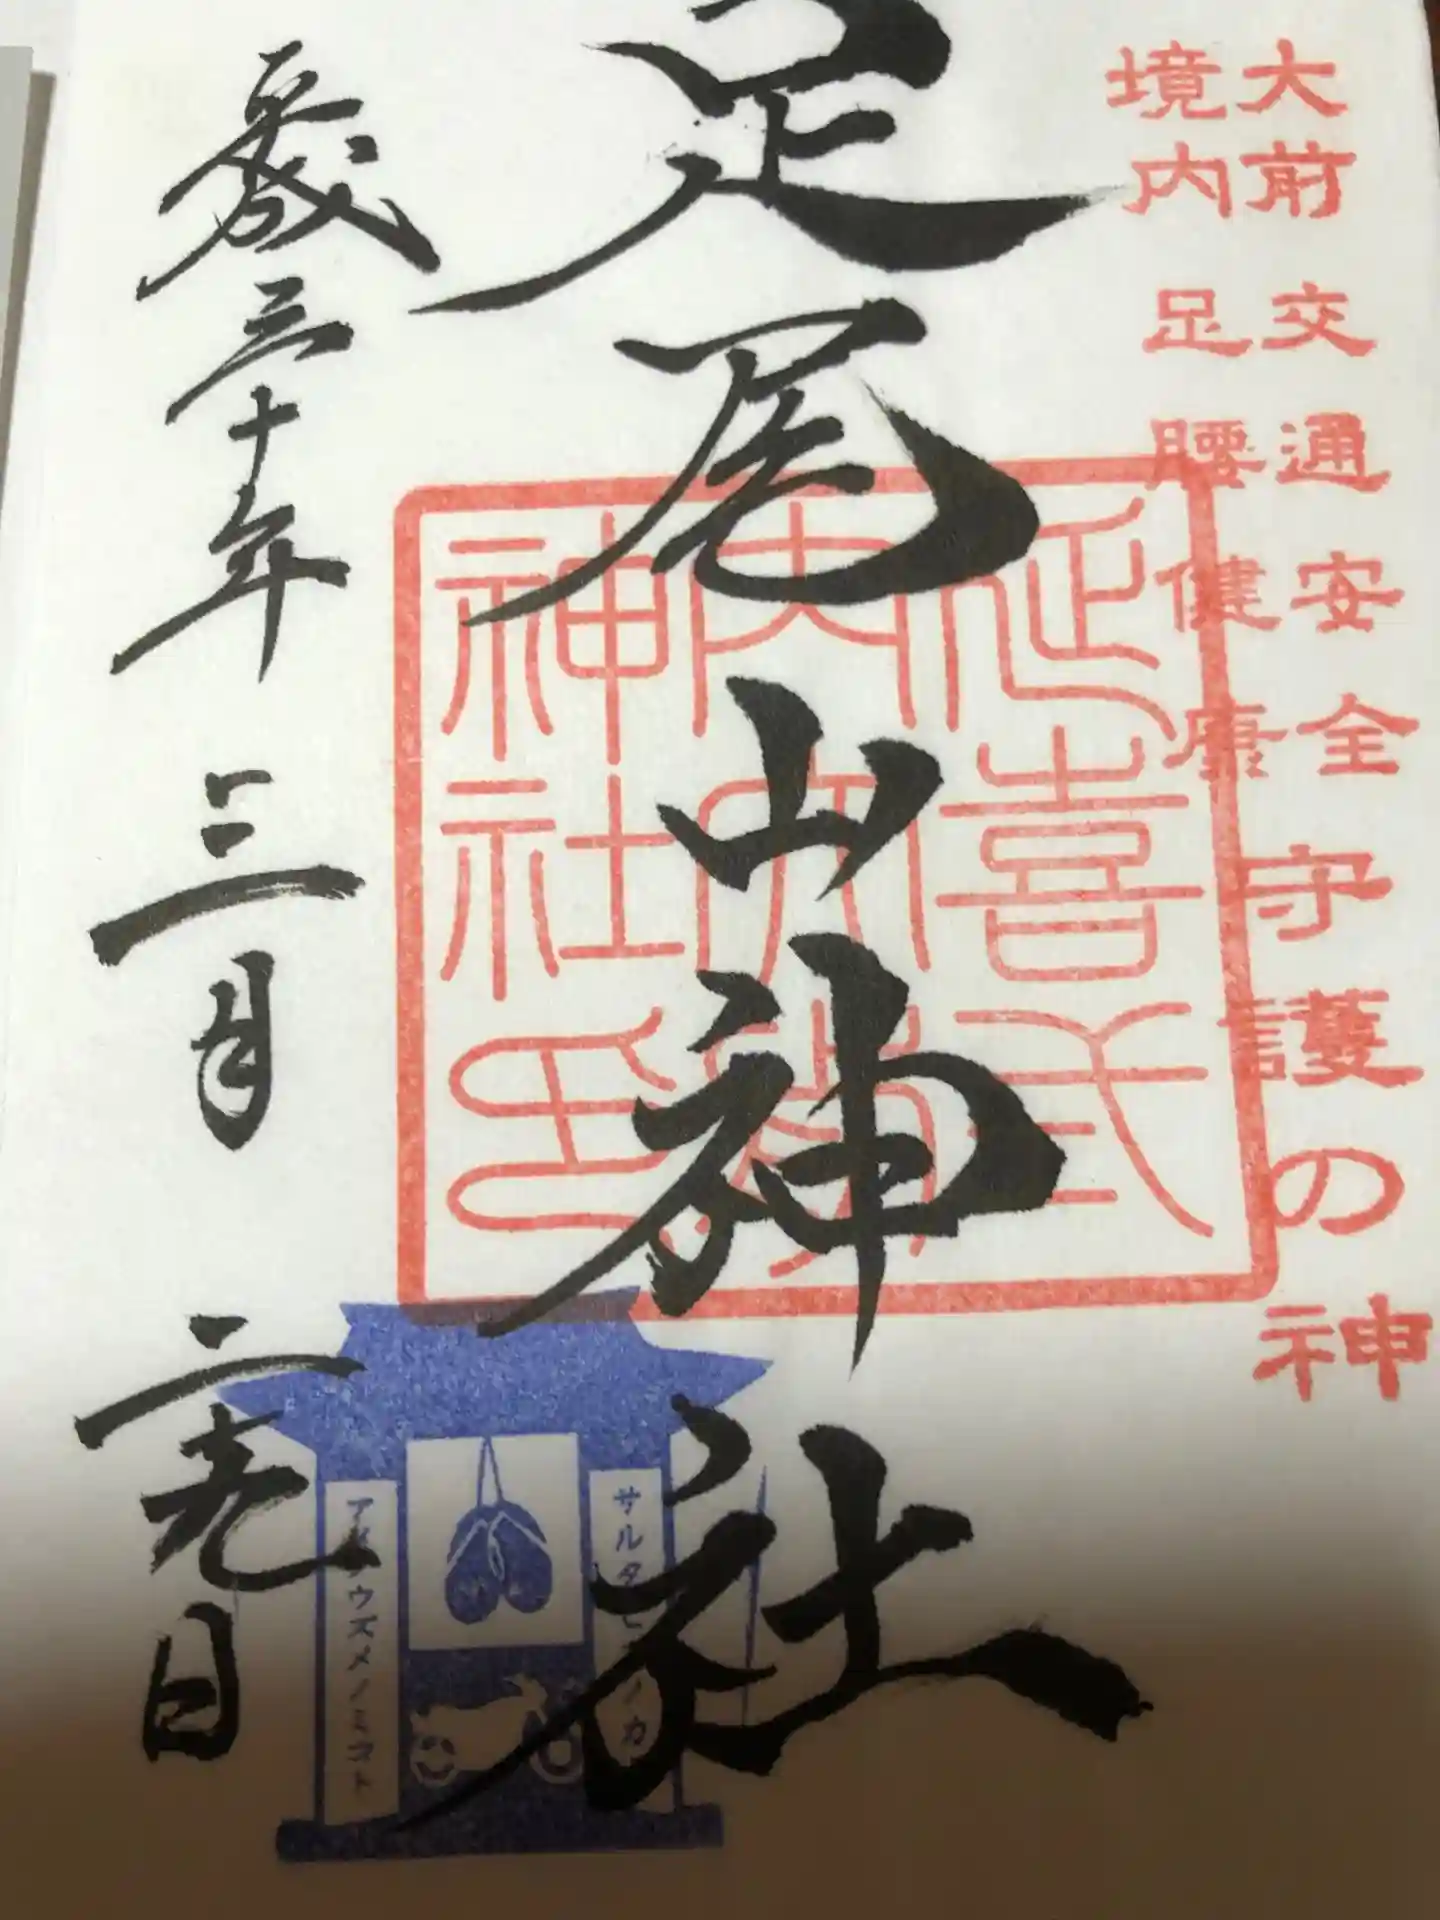 大前 交通安全
境内 足腰健康
守護の神
足尾山神社
延喜式
内大前
神社印
サルタヒコノカミ
アメノウズメノミコト
平成三十年 三月 二十九日